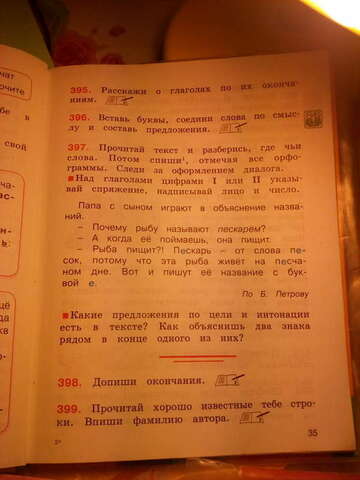 395. Расскажи о глаголах по их оконча-
ниям.
396. Вставь буквы, соедини слова по смыс-
лу и составь предложения.
397. Прочитай текст и разберись, где чьи
слова. Потом спиши¹, отмечая все орфо-
граммы. Следи за оформлением диалога.
Над глаголами цифрами I или II указы-
вай спряжение, надписывай лицо и число.
Папа с сыном играют в объяснение назва-
ний.
– Почему рыбу называют пескарём?
– А когда её поймаешь, она пищит.
– Рыба пищит?! Пескарь – от слова пе-
сок, потому что эта рыба живёт на песча-
ном дне. Вот и пишут её название с бук-
вой е.
По Б. Петрову
Какие предложения по цели и интонации
есть в тексте? Как объяснишь два знака
рядом в конце одного из них?
398. Допиши окончания.
399. Прочитай хорошо известные тебе стро-
ки. Впиши фамилию автора.
35